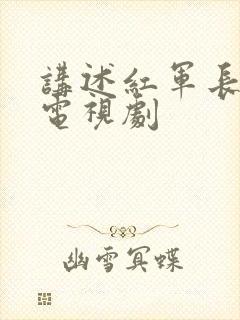 講述紅軍長
電視劇
幽雪冥蝶